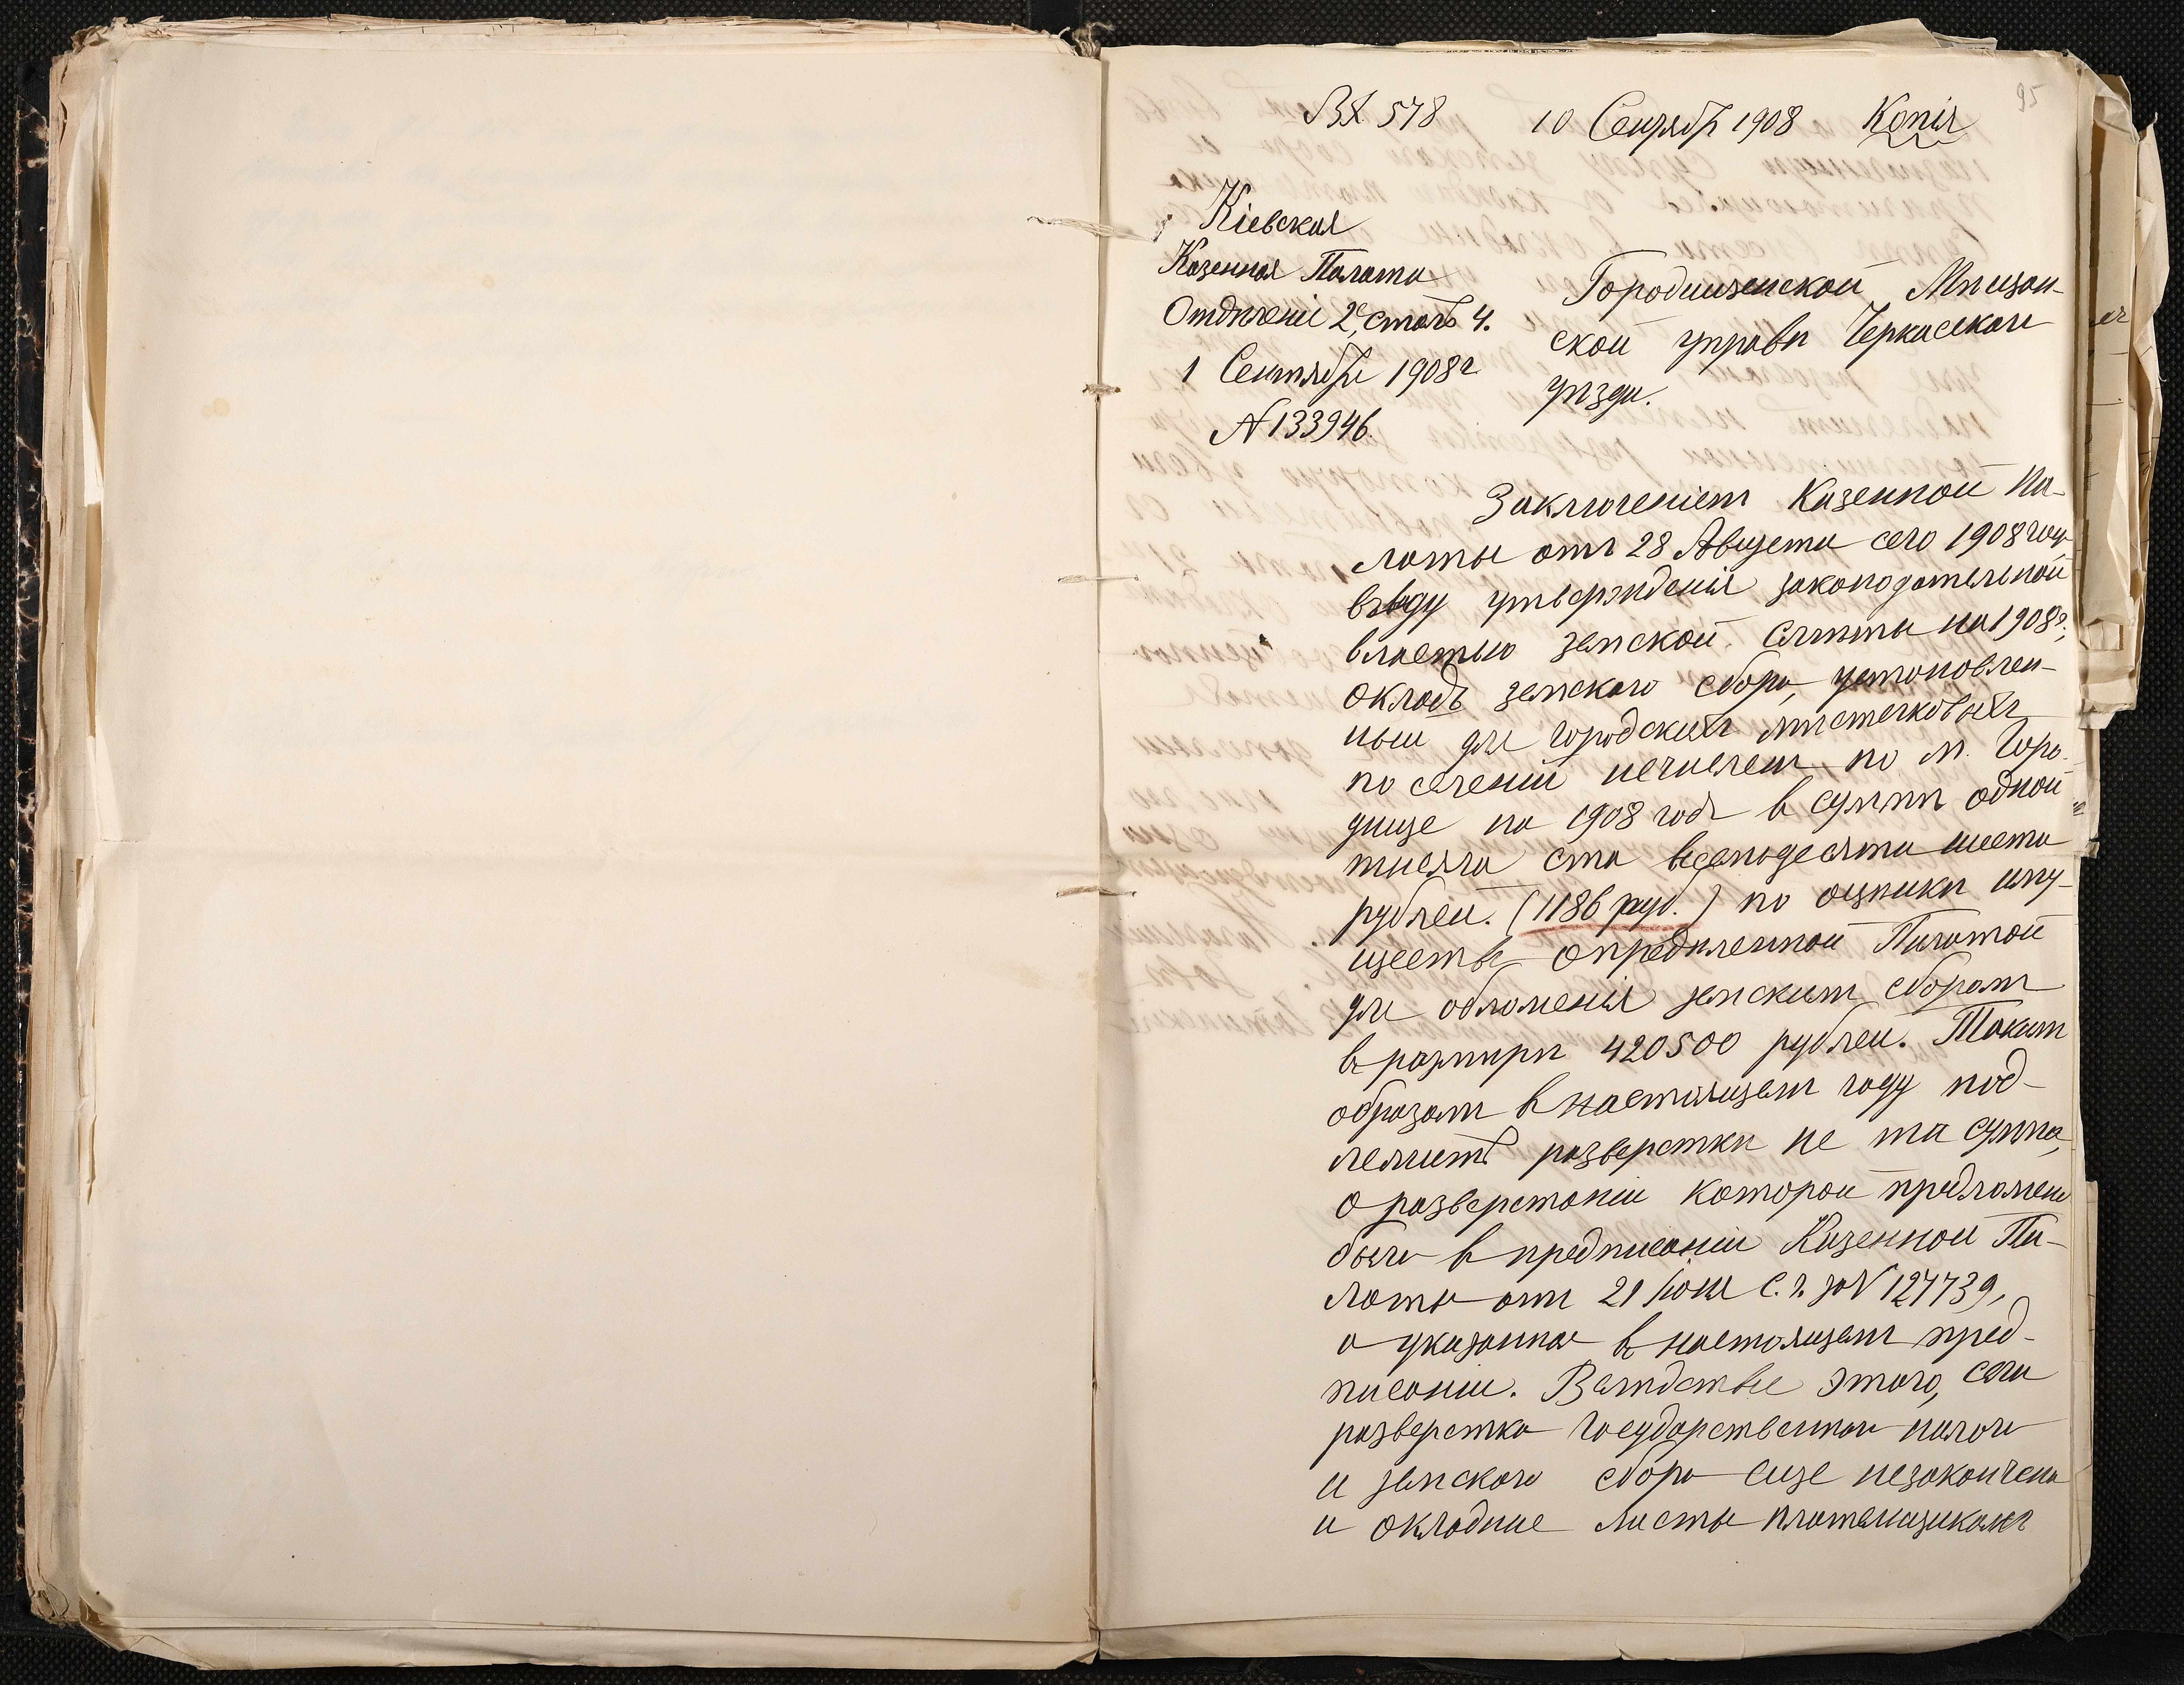 95
Вх 578 10 Сентябр 1908 Копія
Кіевская
Казенная Палата
Отдѣленіе 2е, столъ 4.
1 Сентября 1908 г
№ 133946.
Городищенской Мѣщан-
ской управѣ Черкасскаго
уѣзда.
Заключеніемъ Казенной Па-
латы отъ 28 Августа сего 1908 года
ввиду утвержденія законодательной
властью земской смѣты на 1908 г.,
окладъ земскаго сбора, установлен-
ный для городскихъ мѣстечковыхъ
поселеній исчисленъ по м. Горо-
дище на 1908 годъ в суммѣ одной
тысяча ста восемьдесяти шести
рублей. (1186 руб.) по оцѣнки иму-
ществъ опредѣленной Палатой
для обложенія земскимъ сборомъ
въ размѣрѣ 420500 рублей. Такимъ
образомъ в настоящемъ году под-
лежитъ разверстки не та сумма,
о разверстаніи которой предложено
было в предписаніи Казенной Па-
латы отъ 21 Іюля с. г. за № 127739,
а указанная в настоящемъ пред-
писаніи. Вслѣдствіе этого, если
разверстка государственнаго налога
и земскаго сбора еще незакончена
и окладные листы плательщикамъ